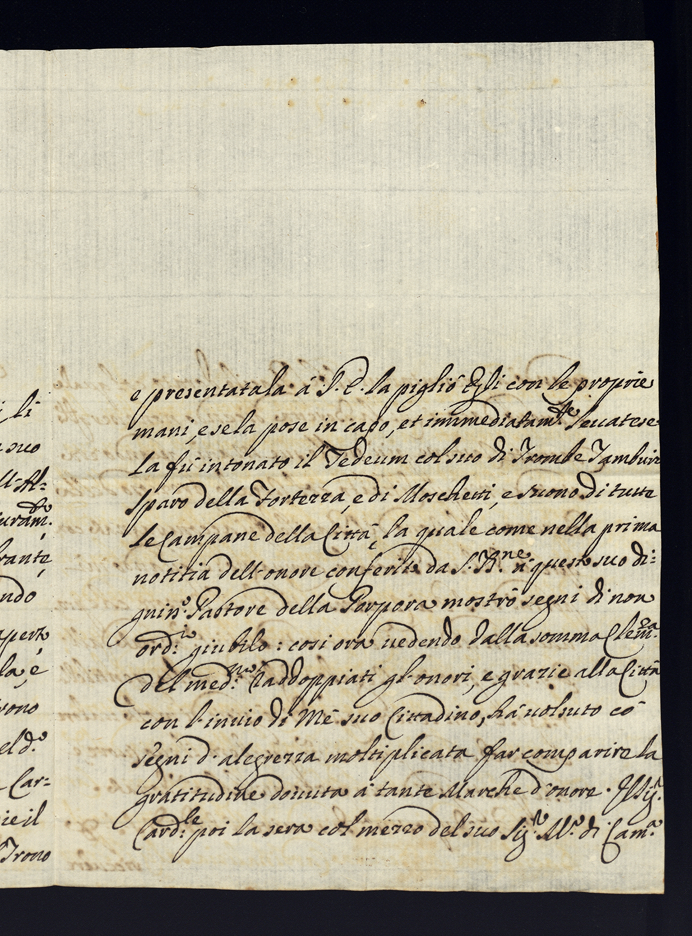 e presentatala á S. E. la pigliò Egli con le proprie
mani, e se la pose in capo, et immediatam.te levatese
la fù intonato il Tedeum col suo di Trombe Tamburi
sparo della Fortezza, e di Moschetti, e suono di tutte
le Campane della Città, la quale come nella prima
notitia dell'onore conferito da S. á questo suo di:
Pastore della Porpora mostrò segni di non
ord.o giubilo: così ora vedendo dalla somma Clem.a
del med.mo raddoppiati gl'onori, e grazie alla Città
con l'invio di Me suo Cittadino, há volsuto có
segni d'alegrezza moltiplicata far comparire la
gratitudine dovuta á tante Marche d'onore. Il Sig.r
Card.le poi la sera col mezzo del suo Sig.r M.o di Cam.a
li
suo
ll'Al:
ndo
la, è
rono
el d.o
Car-
ie il
Trono